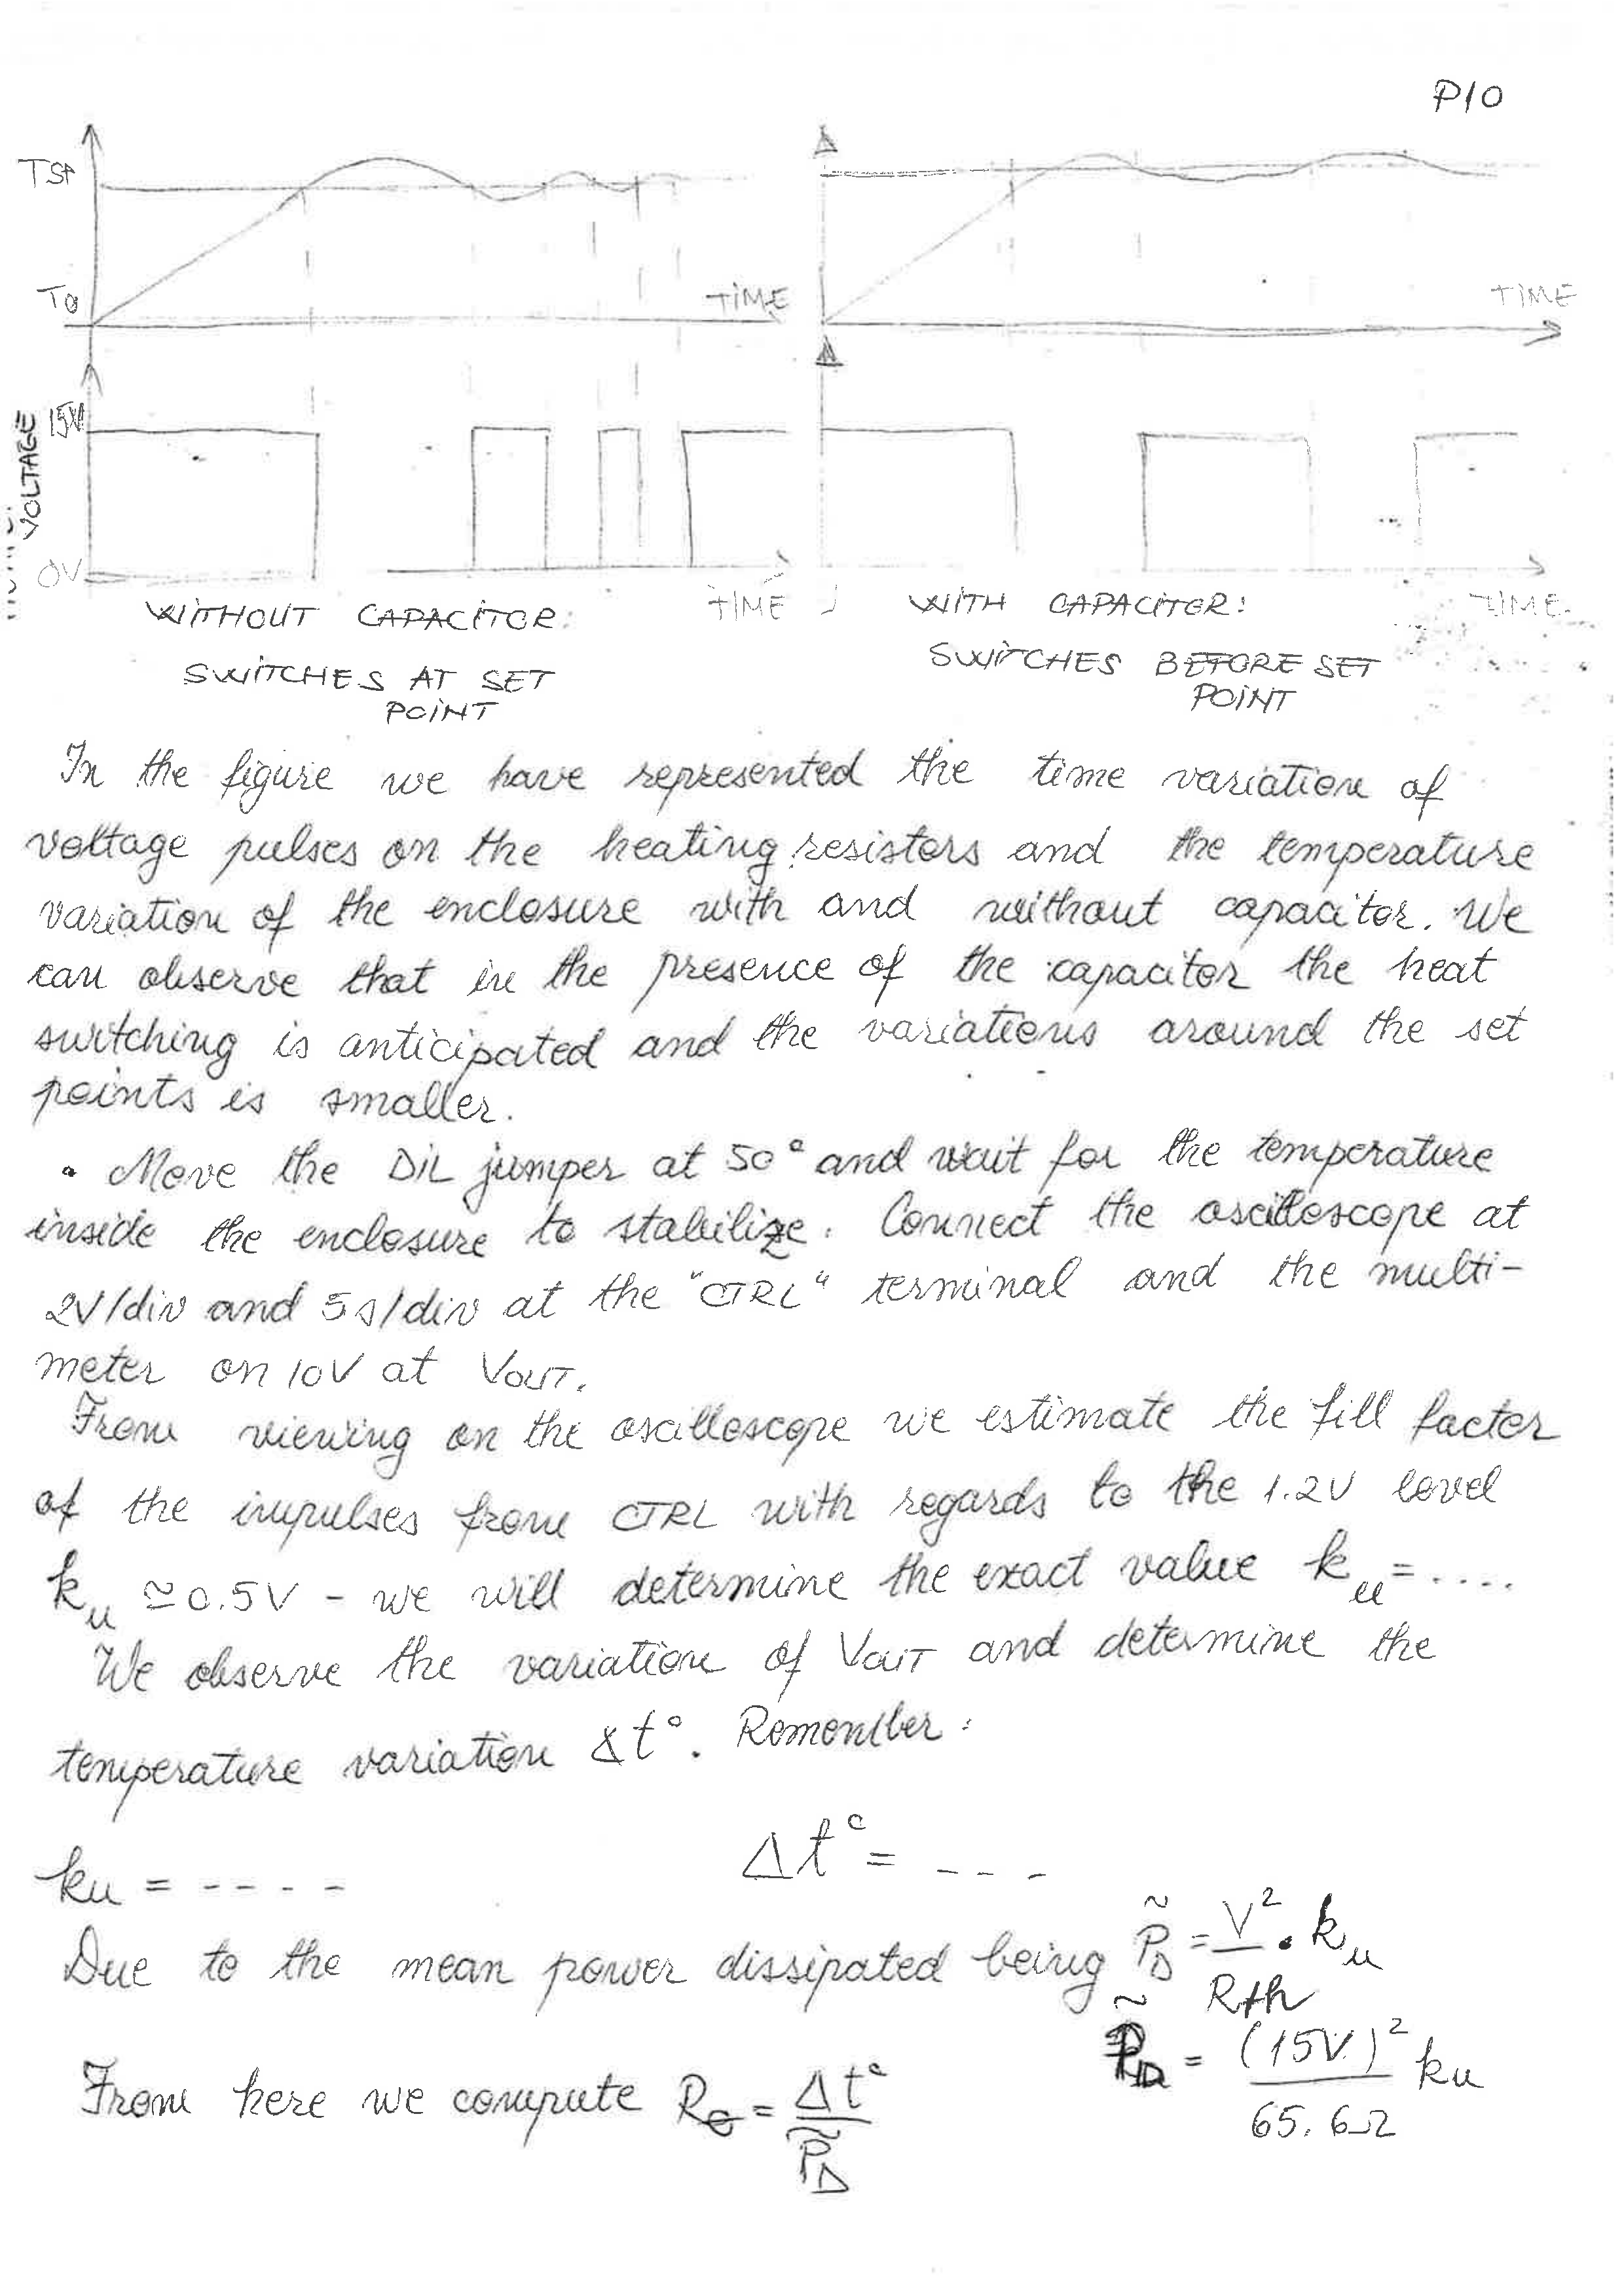 P10
TSP
T0
TIME
TIME
VOLTAGE
15V
0V
TIME
TIME
WITHOUT CAPACITOR:
SWITCHES AT SET
POINT
WITH CAPACITOR:
SWITCHES BEFORE SET
POINT
In the figure we have represented the time variation of
voltage pulses on the heating resistors and the temperature
variation of the enclosure with and without capacitor. We
can observe that in the presence of the capacitor the heat
switching is anticipated and the variations around the set
points is smaller.
• Move the DIL jumper at 50° and wait for the temperature
inside the enclosure to stabilize. Connect the oscilloscope at
2V/div and 5s/div at the "CTRL" terminal and the multi-
meter on 10V at VOUT.
From viewing on the oscilloscope we estimate the fill factor
of the impulses from CTRL with regards to the 1.2V level
ku ≃ 0.5V - we will determine the exact value ku = ....
We observe the variation of VOUT and determine the
temperature variation Δt°. Remember:
ku = - - - -   Δt° = - - -
Due to the mean power dissipated being P̃D = V²/Rth • ku
P̃D = (15V)²/65.6Ω ku
From here we compute Rθ = Δt°/P̃D